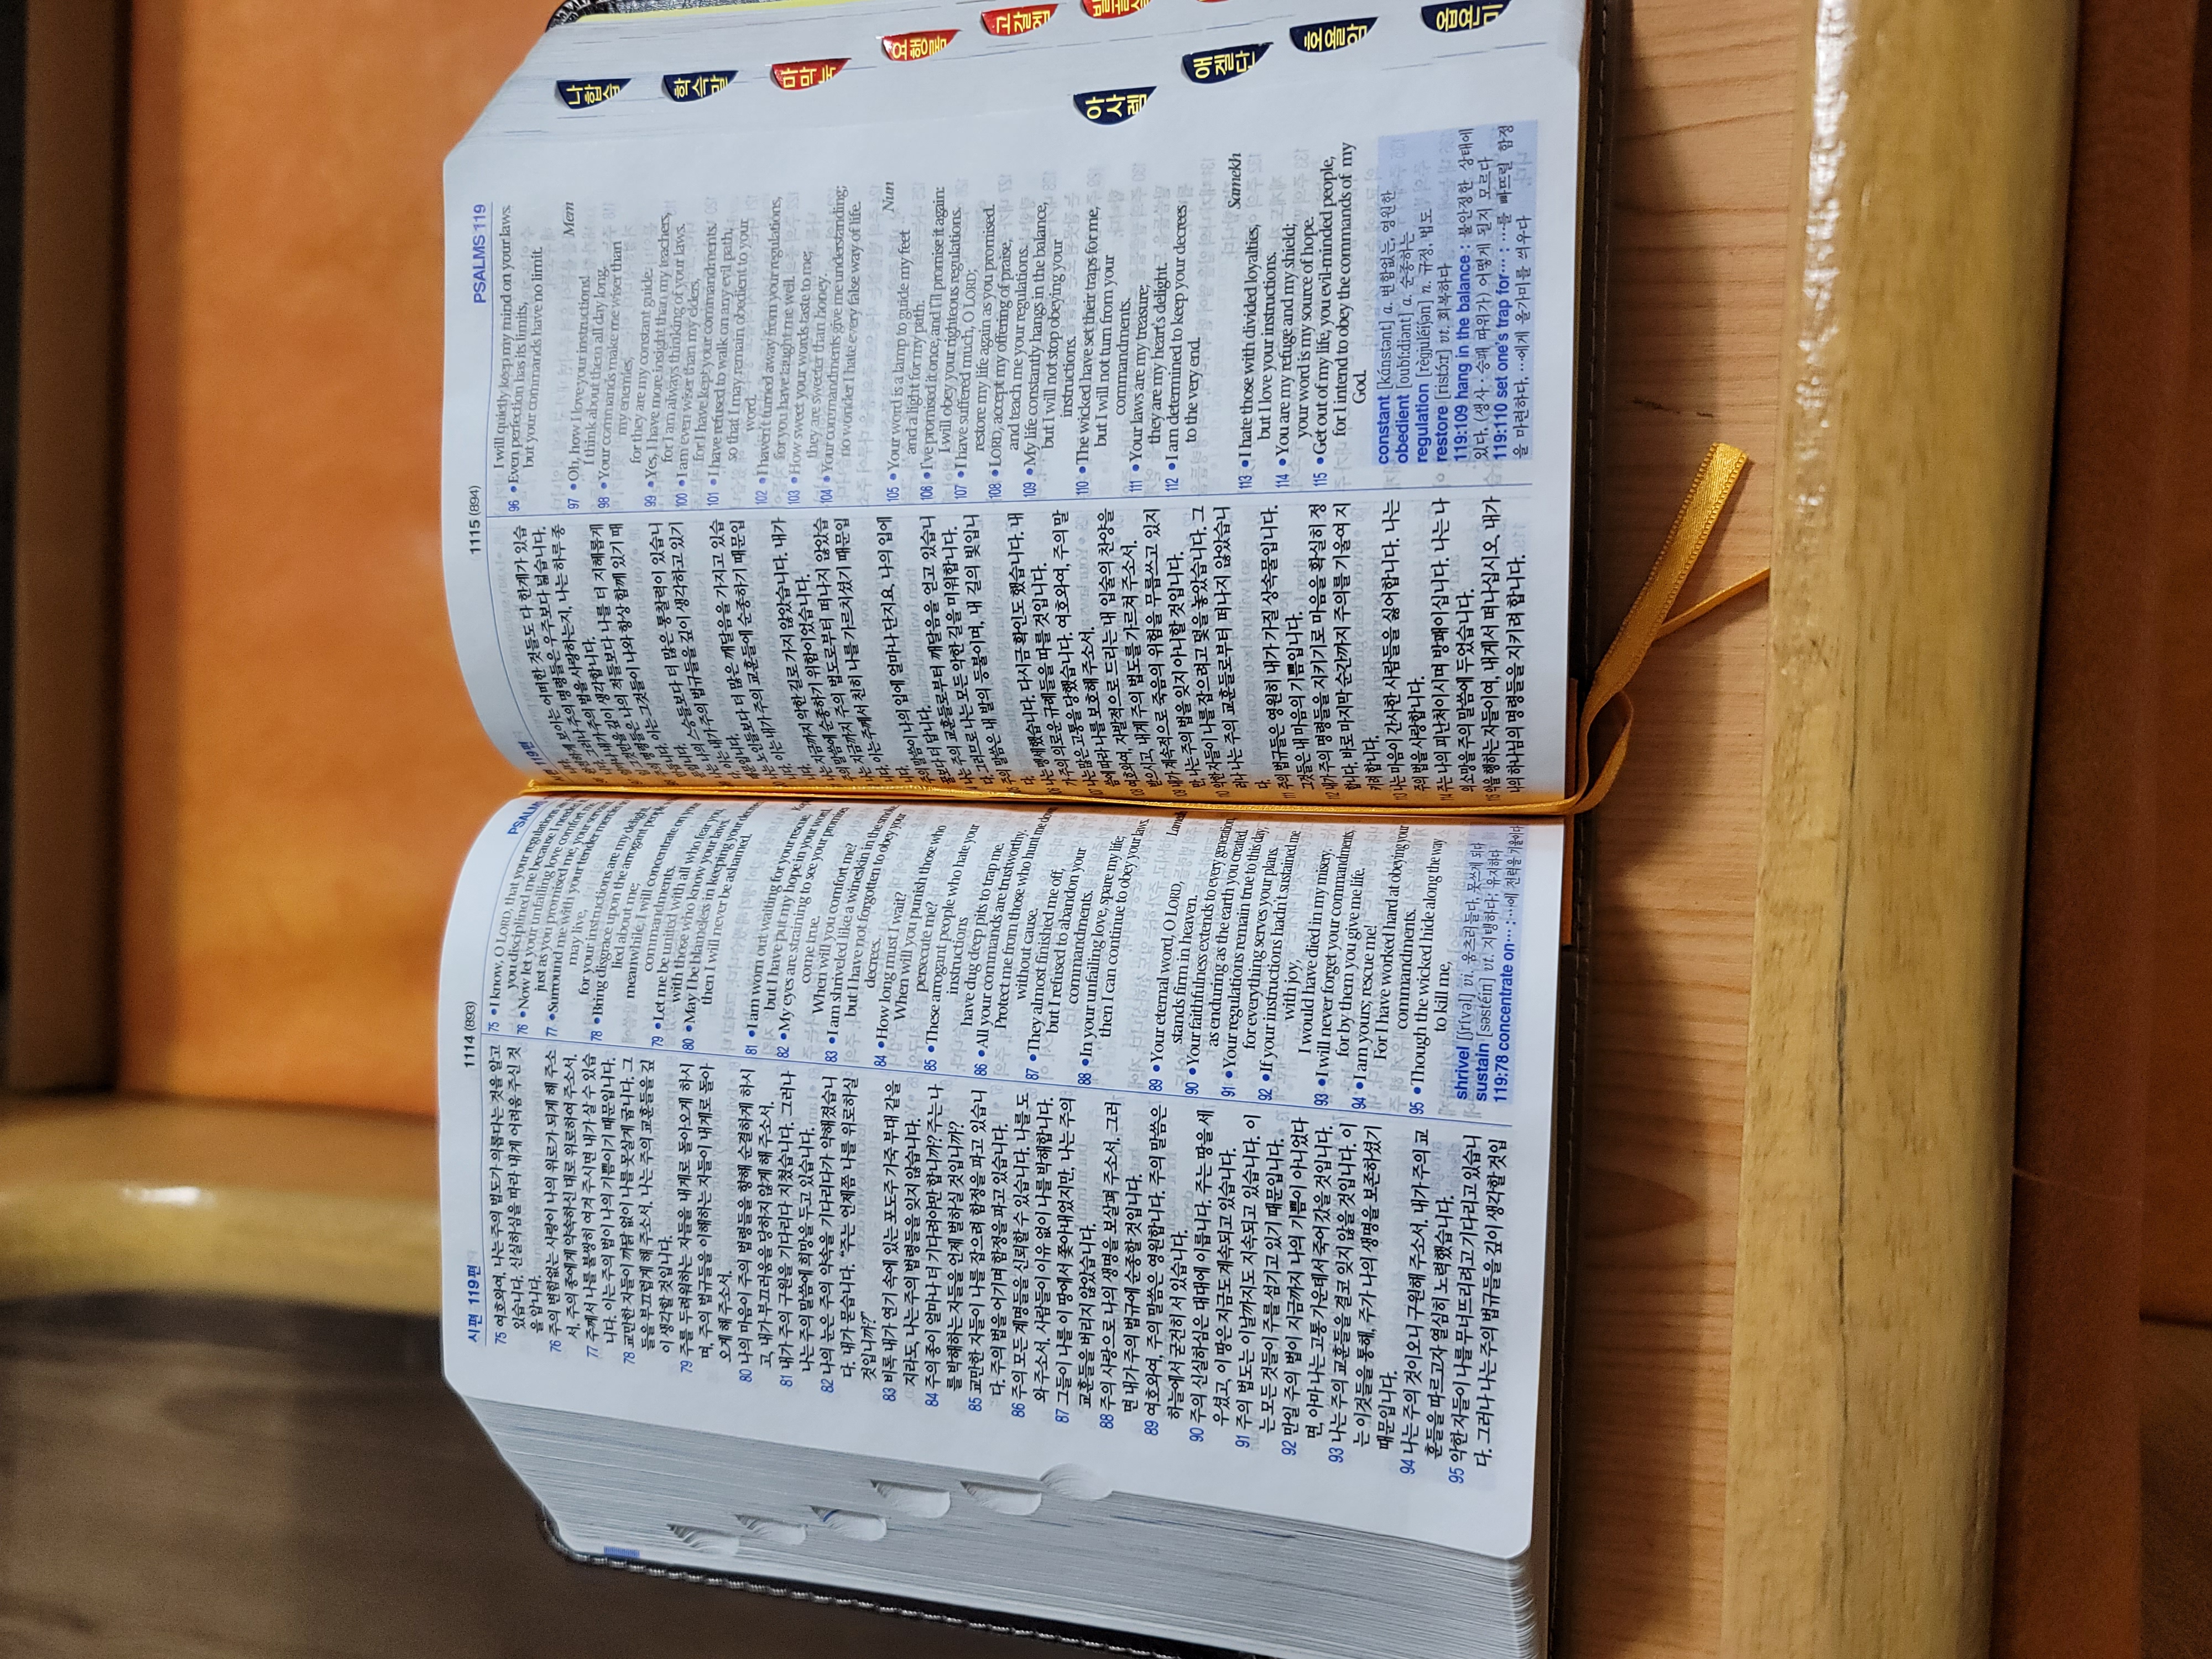 시편 119편
1114 (893)
75 여호와여, 나는 주의 법도가 의롭다는 것을 알고
있습니다. 신실하심을 따라 내게 어려움 주신 것
을 압니다.
76 주의 변함없는 사랑이 나의 위로가 되게 해 주소
서. 주의 종에게 약속하신 대로 위로하여 주소서.
77 주께서 나를 불쌍히 여겨 주시면 내가 살 수 있습
니다. 이는 주의 법이 나의 기쁨이기 때문입니다.
78 교만한 자들이 까닭 없이 나를 못살게 굽니다. 그
들을 부끄럽게 해 주소서. 나는 주의 교훈들을 깊
이 생각할 것입니다.
79 주를 두려워하는 자들을 내게로 돌아오게 하시
며, 주의 법규들을 이해하는 자들이 내게로 돌아
오게 해 주소서.
80 나의 마음이 주의 법령들을 향해 순결하게 하시
고, 내가 부끄러움을 당하지 않게 해 주소서.
81 내가 주의 구원을 기다리다 지쳤습니다. 그러나
나는 주의 말씀에 희망을 두고 있습니다.
82 나의 눈은 주의 약속을 기다리다가 약해졌습니
다. 내가 묻습니다. “주는 언제쯤 나를 위로하실
것입니까?”
83 비록 내가 연기 속에 있는 포도주 가죽 부대 같을
지라도, 나는 주의 법령들을 잊지 않습니다.
84 주의 종이 얼마나 더 기다려야만 합니까? 주는 나
를 박해하는 자들을 언제 벌하실 것입니까?
85 교만한 자들이 나를 잡으려 함정을 파고 있습니
다. 주의 법을 어기며 함정을 파고 있습니다.
86 주의 모든 계명들을 신뢰할 수 있습니다. 나를 도
와 주소서. 사람들이 이유 없이 나를 박해합니다.
87 그들이 나를 이 땅에서 쫓아내었지만, 나는 주의
교훈들을 버리지 않았습니다.
88 주의 사랑으로 나의 생명을 보살펴 주소서. 그러
면 내가 주의 법규에 순종할 것입니다.
89 여호와여, 주의 말씀은 영원합니다. 주의 말씀은
하늘에서 굳건히 서 있습니다.
90 주의 신실하심은 대대에 이릅니다. 주는 땅을 세
우셨고, 이 땅은 지금도 계속되고 있습니다.
91 주의 법도는 이날까지도 지속되고 있습니다. 이
는 모든 것들이 주를 섬기고 있기 때문입니다.
92 만일 주의 법이 지금까지 나의 기쁨이 아니었다
면, 아마 나는 고통 가운데서 죽어 갔을 것입니다.
93 나는 주의 교훈들을 결코 잊지 않을 것입니다. 이
는 이것들을 통해, 주가 나의 생명을 보존하셨기
때문입니다.
94 나는 주의 것이오니 구원해 주소서. 내가 주의 교
훈들을 따르고자 열심히 노력했습니다.
95 악한 자들이 나를 무너뜨리려고 기다리고 있습니
다. 그러나 나는 주의 법규들을 깊이 생각할 것입
75 • I know, O LORD, that your regulations
you disciplined me because I need
76 • Now let your unfailing love comfort
just as you promised me, your serv
77 • Surround me with your tender mercies
may live,
for your instructions are my delight.
78 • Bring disgrace upon the arrogant people
lied about me;
meanwhile, I will concentrate on
commandments.
79 • Let me be united with all who fear you,
with those who know your laws.
80 • May I be blameless in keeping your decrees
then I will never be ashamed.
81 • I am worn out waiting for your rescue,
but I have put my hope in your word.
82 • My eyes are straining to see your promises
come true.
When will you comfort me?
83 • I am shriveled like a wineskin in the smoke,
but I have not forgotten to obey your
decrees.
84 • How long must I wait?
When will you punish those who
persecute me?
85 • These arrogant people who hate your
instructions
have dug deep pits to trap me.
86 • All your commands are trustworthy.
Protect me from those who hunt me down
without cause.
87 • They almost finished me off,
but I refused to abandon your
commandments.
88 • In your unfailing love, spare my life;
then I can continue to obey your laws.
Lamedh
89 • Your eternal word, O LORD,
stands firm in heaven.
90 • Your faithfulness extends to every generation,
as enduring as the earth you created.
91 • Your regulations remain true to this day,
for everything serves your plans.
92 • If your instructions hadn't sustained me
with joy,
I would have died in my misery.
93 • I will never forget your commandments,
for by them you give me life.
94 • I am yours; rescue me!
For I have worked hard at obeying your
commandments.
95 • Though the wicked hide along the way
to kill me,
shrivel [ʃrívəl] vi. 움츠러들다, 못쓰게 되다
sustain [səstéin] vt. 지탱하다; 유지하다
119:78 concentrate on… : …에 전력을 기울이다
1115 (894)
PSALMS 119
것들도 다 한계가 있습
주의 명령들은 우주보다 넓습니다.
주의 법을 사랑하는지, 나는 하루 종
깊이 생각합니다.
나의 적들보다 나를 더 지혜롭게
이는 그것들이 나와 항상 함께 있기 때
스승들보다 더 많은 통찰력이 있습니
내가 주의 법규들을 깊이 생각하고 있기
노인들보다 더 많은 깨달음을 가지고 있습
이는 내가 주의 교훈들에 순종하기 때문입
지금까지 악한 길로 가지 않았습니다. 내가
말씀에 순종하기 위함이었습니다.
지금까지 주의 법도로부터 떠나지 않았습
이는 주께서 친히 나를 가르치셨기 때문입
주의 말씀이 나의 입에 얼마나 단지요. 나의 입에
꿀보다 더 답니다.
나는 주의 교훈들로부터 깨달음을 얻고 있습니
다. 그러므로 나는 모든 악한 길을 미워합니다.
주의 말씀은 내 발의 등불이며, 내 길의 빛입니
다.
나는 맹세했습니다. 다시금 확인도 했습니다. 내
가 주의 의로운 규례들을 따를 것입니다.
나는 많은 고통을 당했습니다. 여호와여, 주의 말
씀에 따라 나를 보호해 주소서.
여호와여, 자발적으로 드리는 내 입술의 찬양을
받으시고, 내게 주의 법도를 가르쳐 주소서.
내가 계속적으로 죽음의 위험을 무릅쓰고 있지
만, 나는 주의 법을 잊지 아니할 것입니다.
악한 자들이 나를 잡으려고 덫을 놓았습니다. 그
러나 나는 주의 교훈들로부터 떠나지 않았습니
다.
주의 법규들은 영원히 내가 가질 상속물입니다.
그것들은 내 마음의 기쁨입니다.
내가 주의 명령들을 지키기로 마음을 확실히 정
합니다. 바로 마지막 순간까지 주의를 기울여 지
키려 합니다.
나는 마음이 간사한 사람들을 싫어합니다. 나는
주의 법을 사랑합니다.
주는 나의 피난처이시며 방패이십니다. 나는 나
의 소망을 주의 말씀에 두었습니다.
악을 행하는 자들이여, 내게서 떠나십시오. 내가
나의 하나님의 명령들을 지키려 합니다.
I will quietly keep my mind on your laws.
96 • Even perfection has its limits,
but your commands have no limit.
Mem
97 • Oh, how I love your instructions!
I think about them all day long.
98 • Your commands make me wiser than
my enemies,
for they are my constant guide.
99 • Yes, I have more insight than my teachers,
for I am always thinking of your laws.
100 • I am even wiser than my elders,
for I have kept your commandments.
101 • I have refused to walk on any evil path,
so that I may remain obedient to your
word.
102 • I haven't turned away from your regulations,
for you have taught me well.
103 • How sweet your words taste to me;
they are sweeter than honey.
104 • Your commandments give me understanding;
no wonder I hate every false way of life.
Nun
105 • Your word is a lamp to guide my feet
and a light for my path.
106 • I've promised it once, and I'll promise it again:
I will obey your righteous regulations.
107 • I have suffered much, O LORD;
restore my life again as you promised.
108 • LORD, accept my offering of praise,
and teach me your regulations.
109 • My life constantly hangs in the balance,
but I will not stop obeying your
instructions.
110 • The wicked have set their traps for me,
but I will not turn from your
commandments.
111 • Your laws are my treasure;
they are my heart's delight.
112 • I am determined to keep your decrees
to the very end.
Samekh
113 • I hate those with divided loyalties,
but I love your instructions.
114 • You are my refuge and my shield;
your word is my source of hope.
115 • Get out of my life, you evil-minded people,
for I intend to obey the commands of my
God.
constant [kánstənt] a. 변함없는, 영원한
obedient [oubíːdiənt] a. 순종하는
regulation [règjuléiʃən] n. 규정, 법도
restore [ristɔ́ːr] vt. 회복하다
119:109 hang in the balance : 불안정한 상태에
있다, (생사 · 승패 따위가) 어떻게 될지 모르다
119:110 set one's trap for… : …를 빠뜨릴 함정
을 마련하다, …에게 올가미를 씌우다
나
합
습
학
슥
말
마
막
눅
요
행
롬
고
갈
엡
아
사
렘
애
겔
단
호
욜
암
옵
욘
미